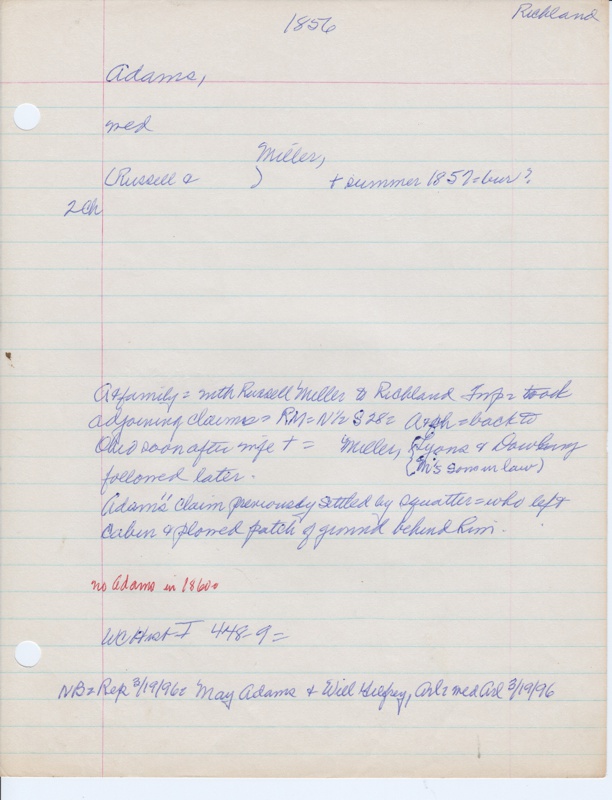 1856
Richland
Adams,
med
Miller,
(Russell & ) + summer 1857 = bur?
2 Ch
A & family = with Russell Miller to Richland Twp = took
adjoining claims = RM = N½ S 28 = A & ch = back to
Ohio soon after wife + = Miller, Lyons &
(M's sons in law)
followed later.
Adam's claim previously settled by squatter = who left
cabin & plowed patch of ground behind him.
no Adams in 1860 =
WC Hist I 448-9 =
NB = Rep 3/19/96 = May Adams & Will, Arl = med Arl 3/19/96